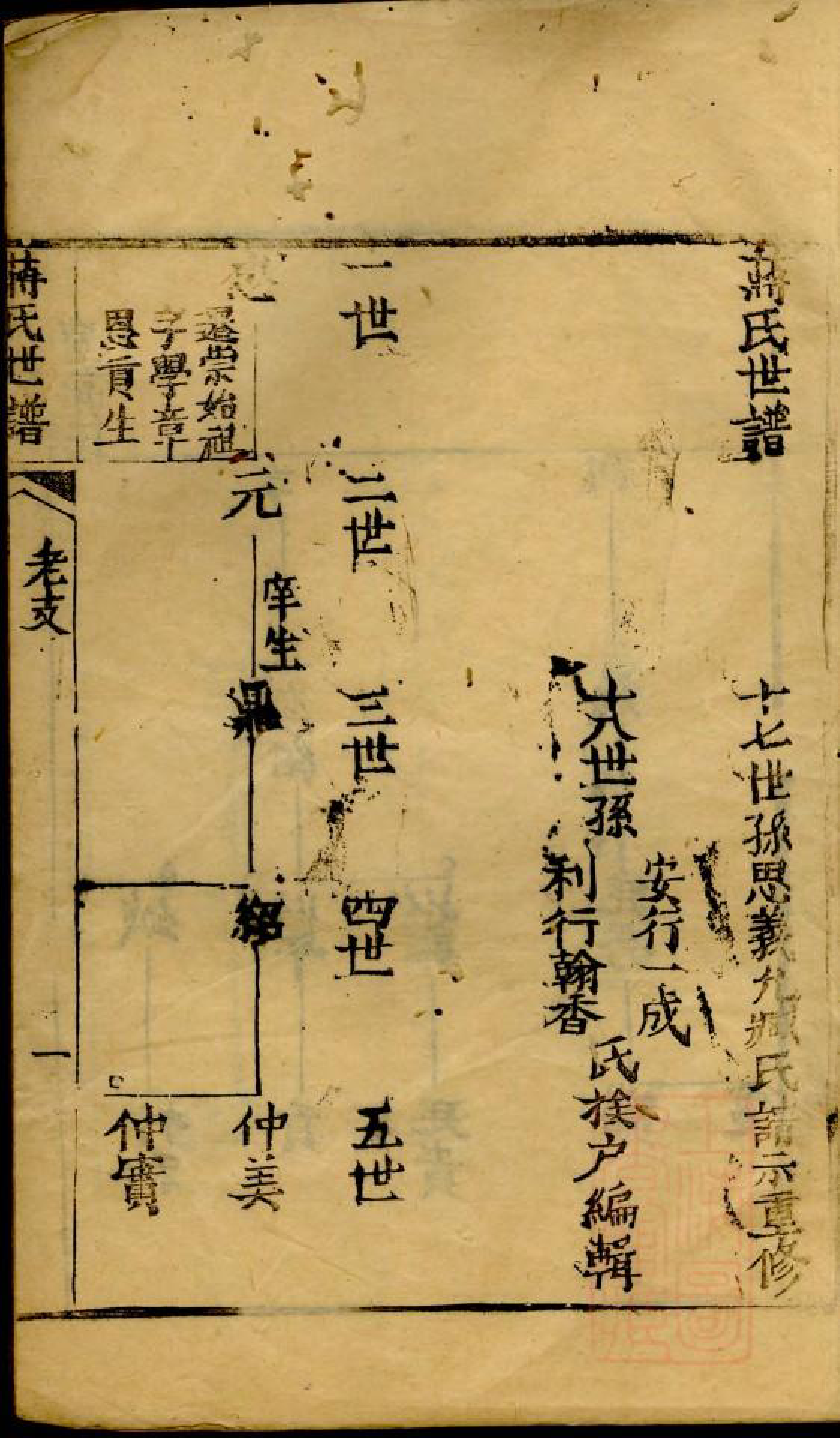 蔣氏世譜
十七世孫思義允臧氏諸示重修
安行一成
十八世孫
氏族户編輯
利行翰香
一世
二世
三世
四世
五世
元
宰生
鼎
紹
仲美
仲實
遷崇始祖
字學章
恩貢生
蔣氏世譜
老支
一